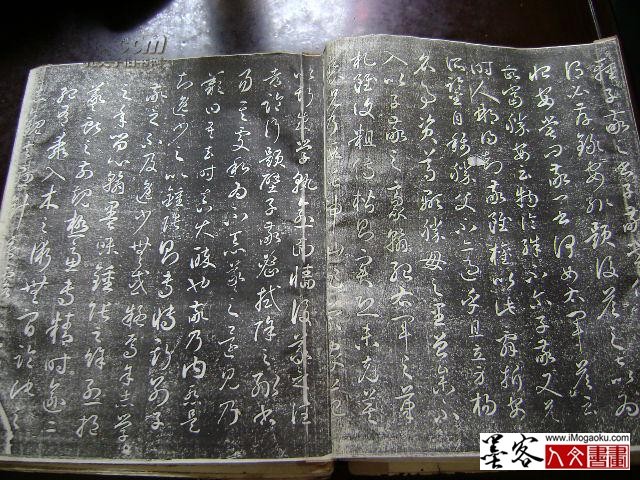 輕子敬之書子敬
謂必存錄安輒題後答之甚以為
恨安嘗問敬卿書何如右軍答云
故當勝安云物論殊不爾子敬又答
時人那得知敬雖權以此辭折安
所鑒自稱勝父不亦過乎且立身揚
名事資尊顯勝母之里曾參不
入以子敬之豪翰紹右軍之筆
札雖復粗傳楷則實恐未克箕
裘況乃假託神仙恥崇
以斯成學孰愈面牆後羲之往
都臨行題壁子敬密拭除之輒書
易其處私為不惡羲之還見乃
歎曰吾去時真大醉也敬乃內慚是
知逸少之比鍾張則專博斯別子
敬之不及逸少無或疑焉余志學
之年留心翰墨味鍾張之餘烈挹
羲獻之前規極慮專精時逾二
紀有乖入木之術無間臨池之
墨客
www.iMogaoku.com
人文書畫